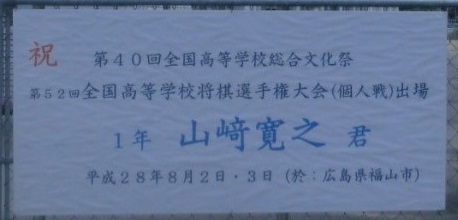 祝 第４０回全国高等学校総合文化祭
第５２回全国高等学校将棋選手権大会(個人戦)出場
１年 山﨑寛之 君
平成２８年８月２日・３日（於：広島県福山市）